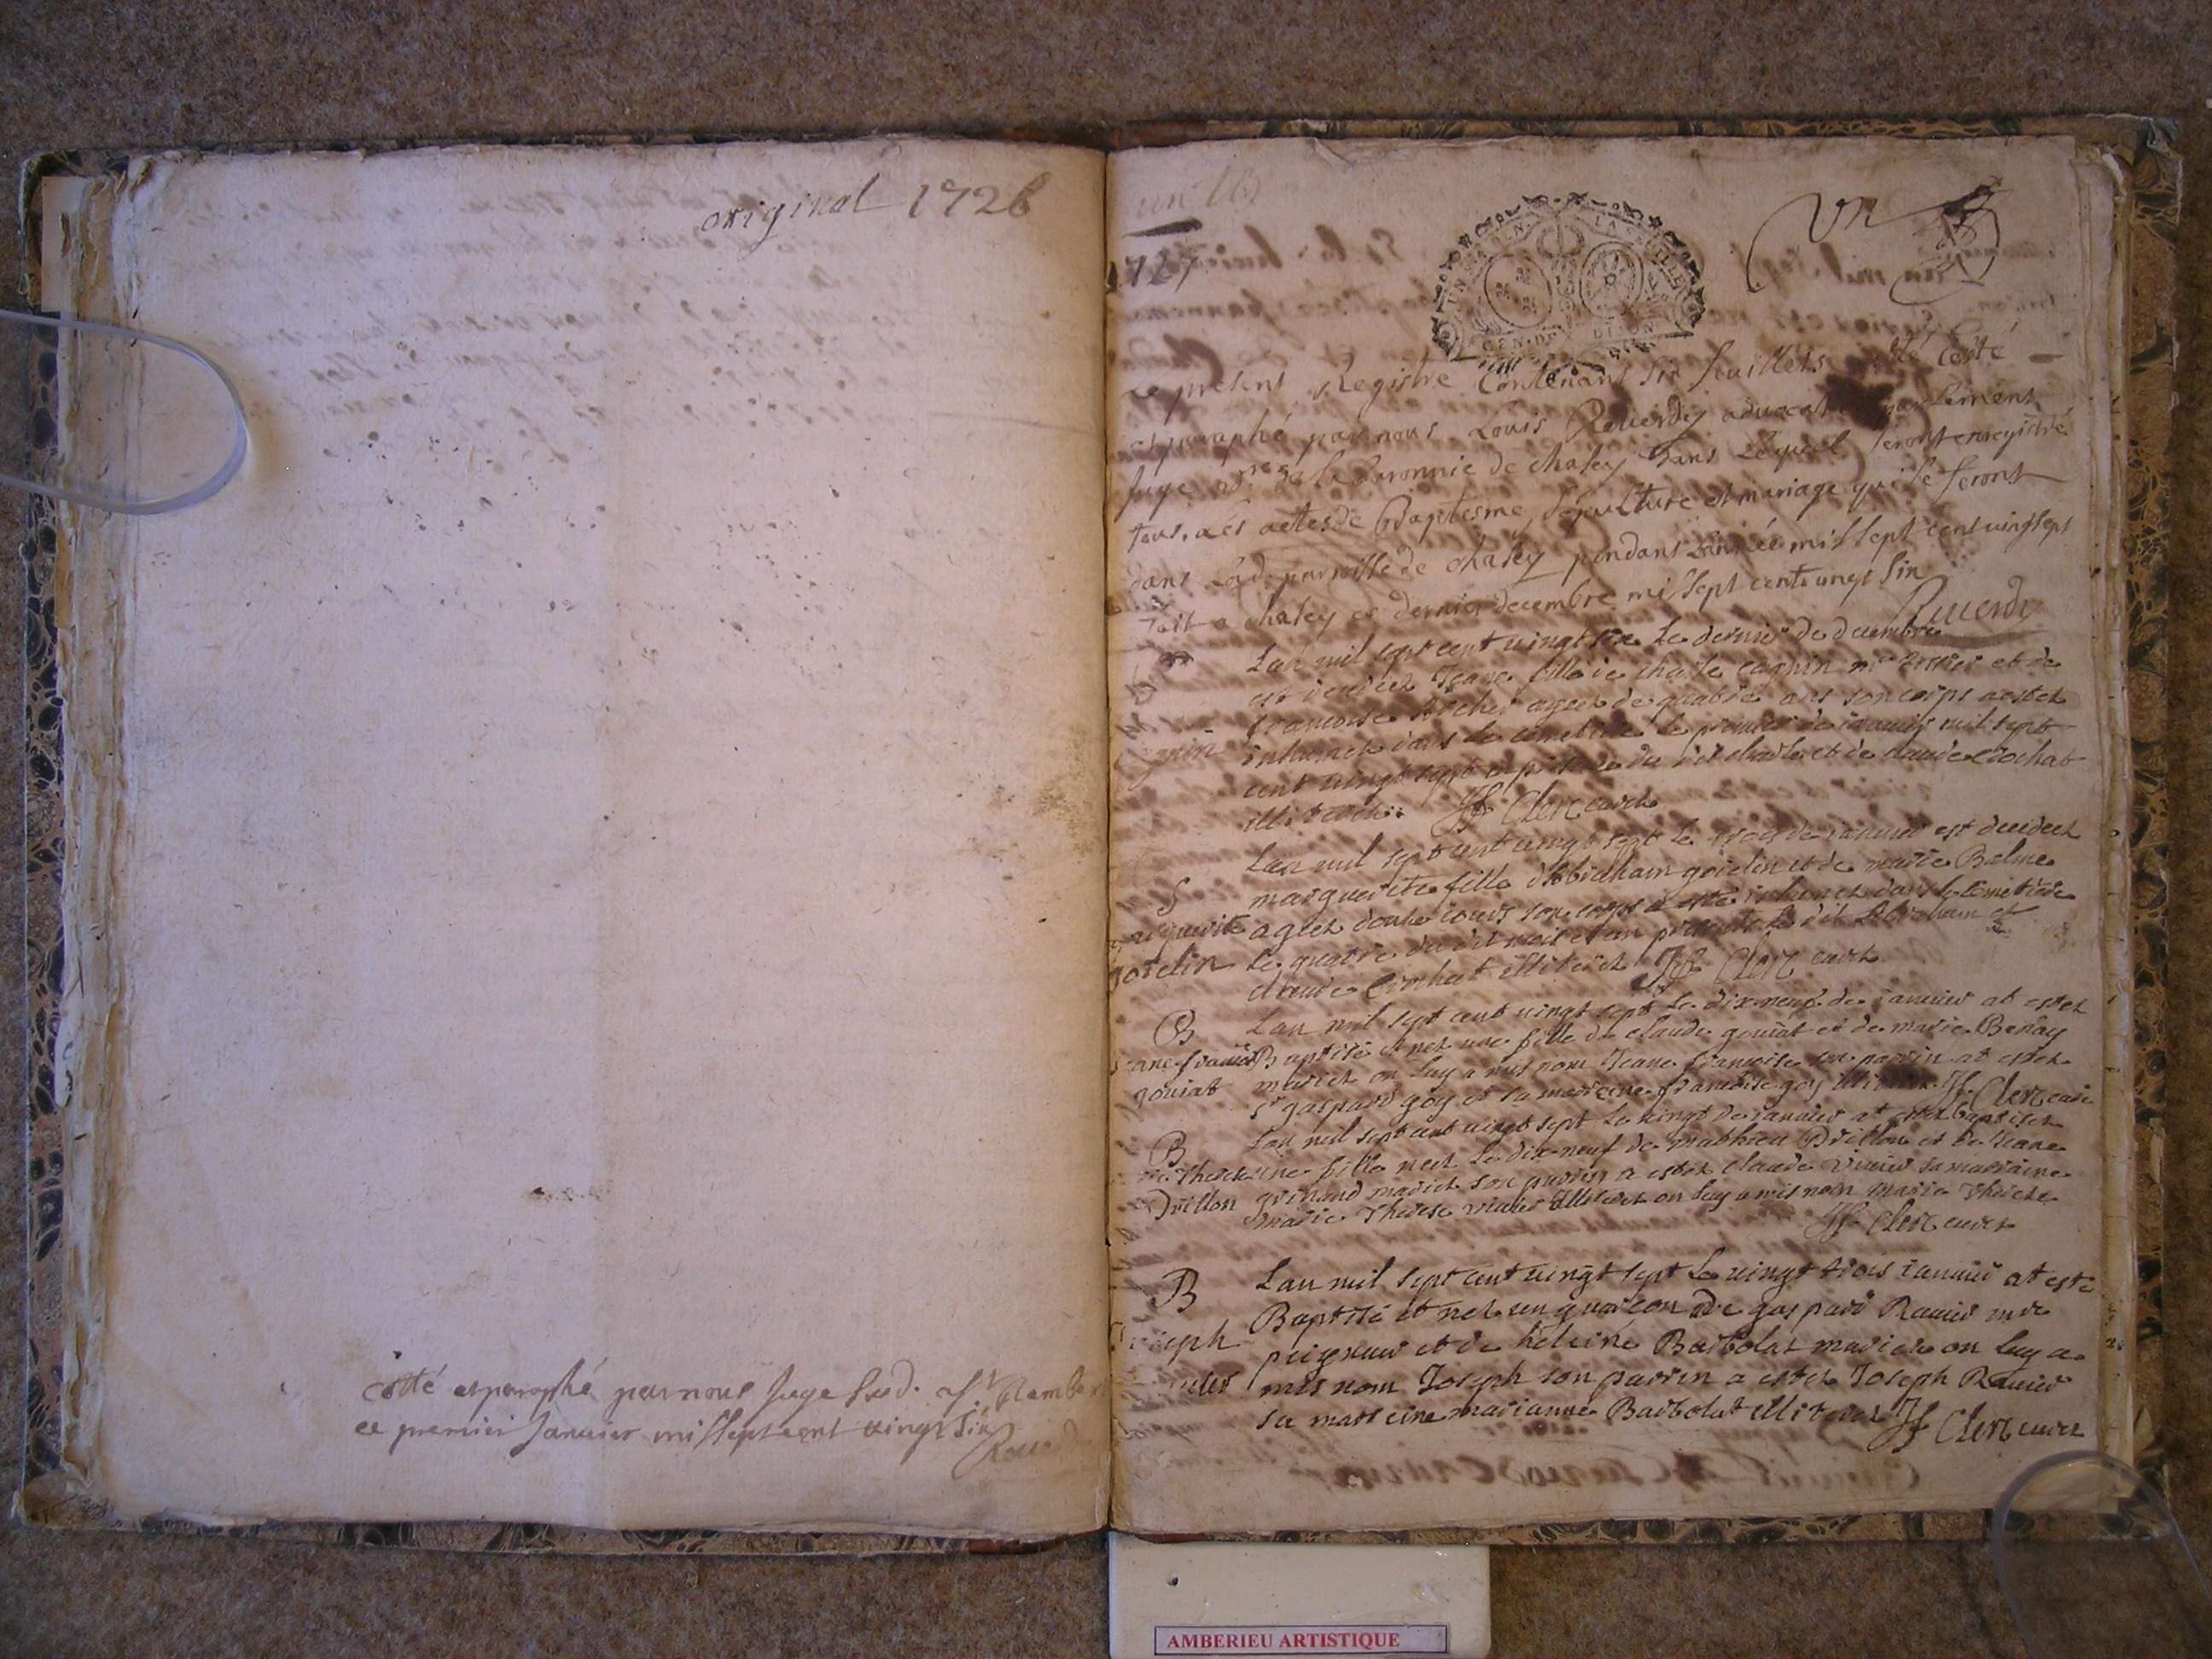 original 1726
cotté et paraphé par nous Juge sud. a St Rambert
ce premier Janvier mil sept cent vingt six
Reuerdy
un
1727
UN
GEN. DE DIJON
Le present Registre Contenant six feuillets esté Cotté
et paraphé par nous Louis Reuerdy advocat parlement
Juge de la baronnie de chasey dans Lequel seront enregistré
tous les actes de Baptesme, sepulture et mariage qui se feront
dans Lad. parroisse de chasey pendant L'année mil sept cent vingt sept
fait a chasey ce dernier decembre mil sept cent vingt six
Reuerdy
Lan mil sept cent vingt six le dernier de decembre
est decedet Jeane fille de charle cognin et de
francoise agee de quatre ans son corps a estet
inhumet dans le cemetiere le premier de ianuier mil sept
cent vingt sept dudit charle et de claude Crochat
illiterets Jf Clerc curet
Lan mil sept cent vingt sept le trois de ianuier est decedet
S
marguerite fille d'Abraham goiclin et de marie Balme
marguerite
ageet douse iours son corps a esté inhumet dans le cemetiere
goiclin
le quatre du dit mois et an presents le dit Abraham et
claude Crochat illiterets Jf Clerc curet
B
Lan mil sept cent vingt sept le dix neuf de ianuier at estet
Jeane francoise
Baptisé et net une fille de claude gouiat et de marie Benay
gouiat
mariet on luy a mis nom Jeane francoise son parrin at estet
Sr gaspard goy et sa marreine francoise goy Jf Clerc curé
B
Lan mil sept cent vingt sept le vingt de ianuier at estet baptiset
une fille neet le dix neuf de mathieu Drillon et de Jeane
Drillon
mariet son parrin a estet claude Viuier sa marraine
marie Therese viuier illiteret on luy a mis nom marie Therese
Jf Clerc curet
B
Lan mil sept cent vingt sept le vingt trois ianuier at esté
Baptisé et net un guarcon de gaspard Rauier mre
Joseph
peigneur et de heleine Barbolat mariet on luy a
mis nom Joseph son parrin a estet Joseph Rauier
sa marreine marianne Barbolat illiteret Jf Clerc curet
AMBERIEU ARTISTIQUE